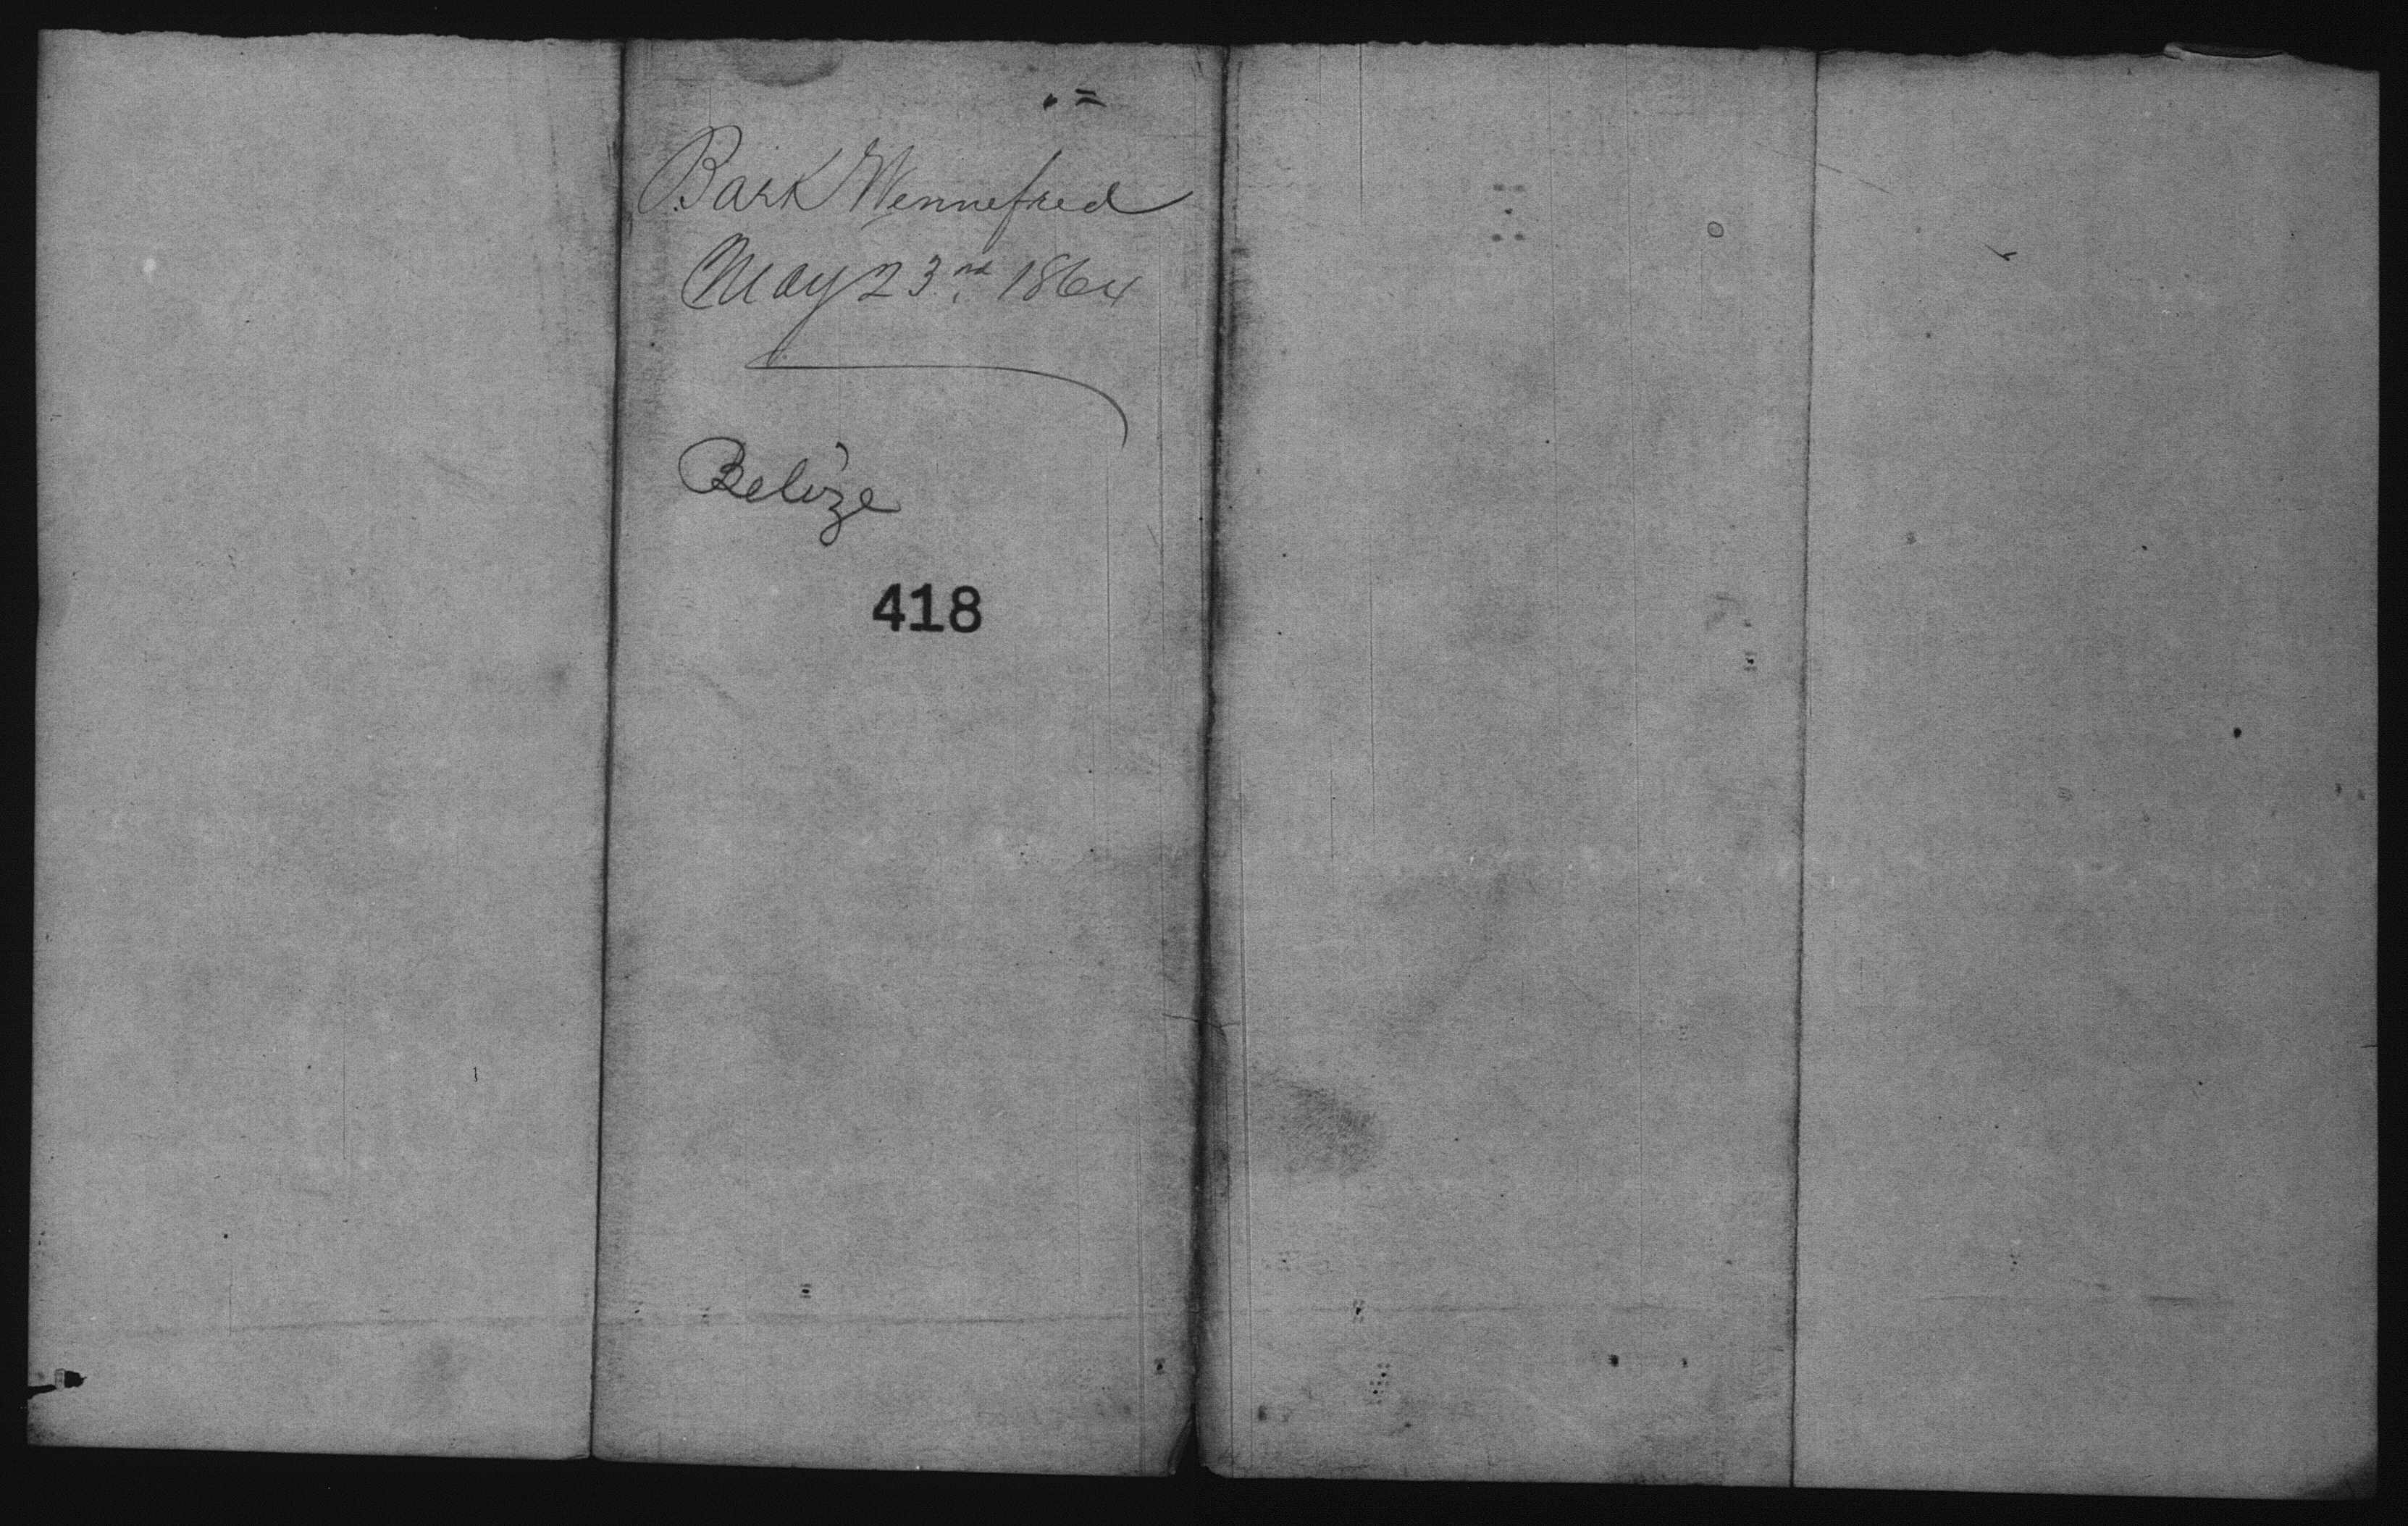 Bark Wennefred
May 23rd 1864
Belize
418